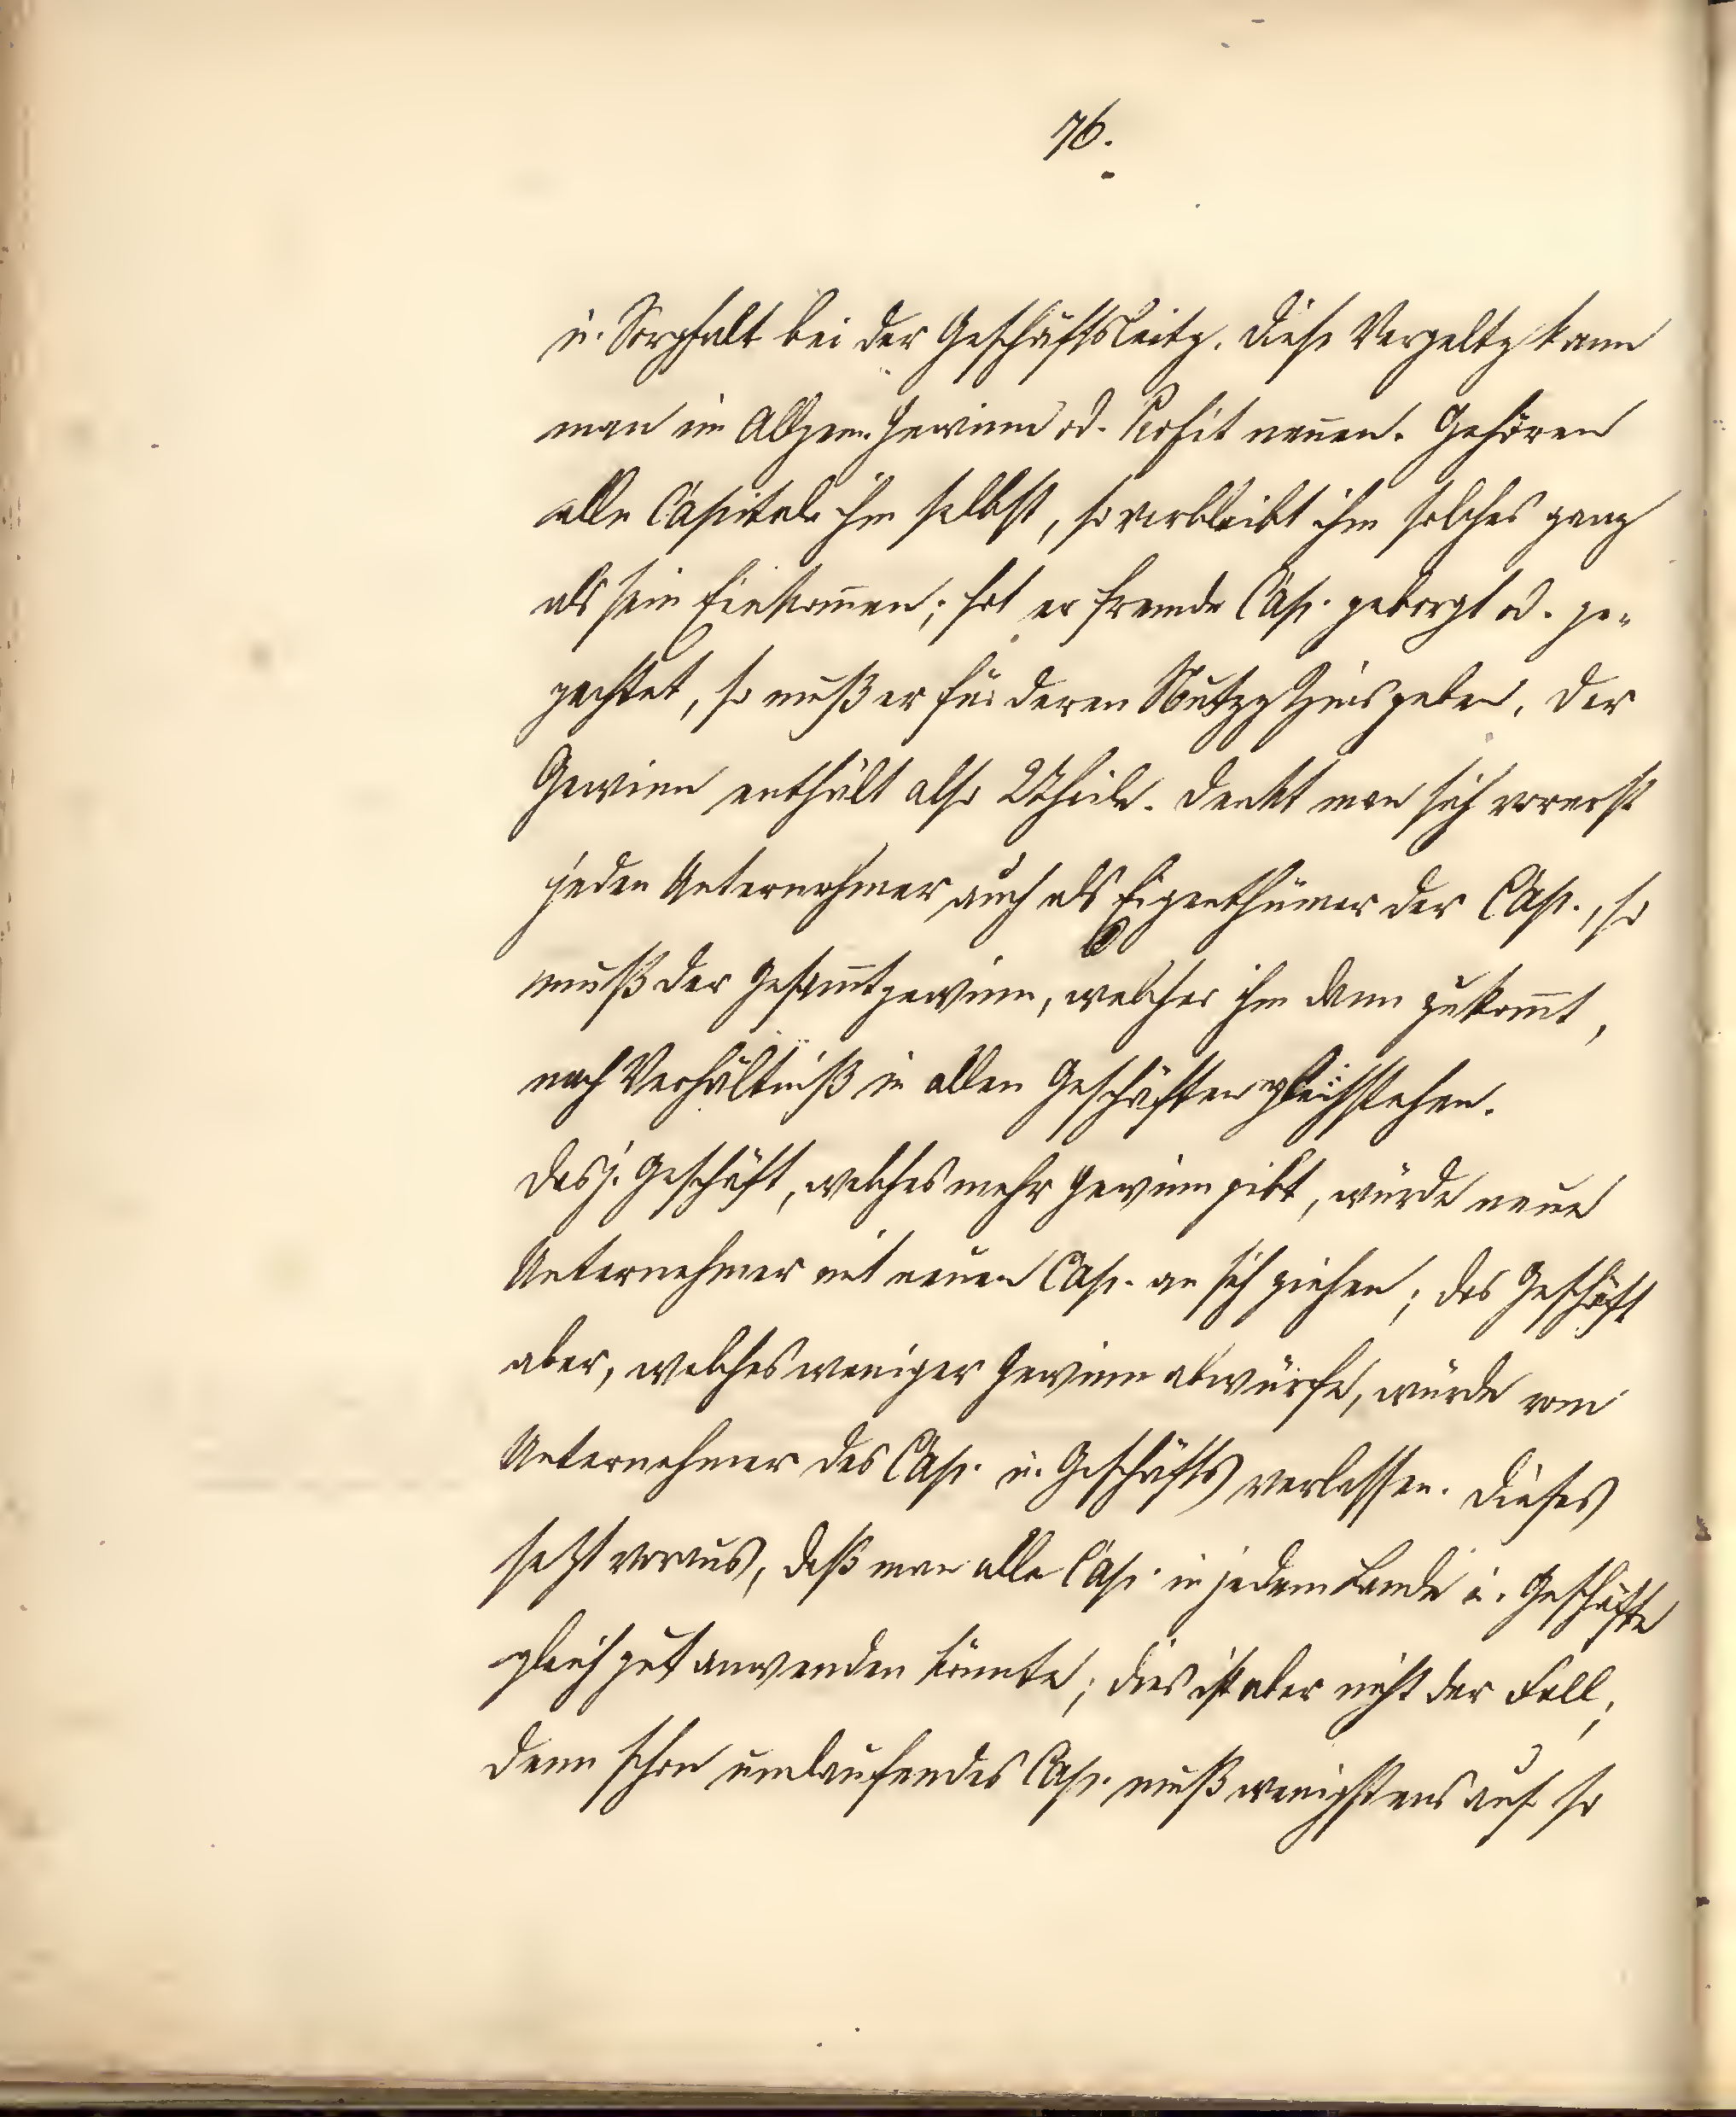 76.
u. Sorgfalt bei der Geschäftsleitg. Diese Vergeltg kann
man im Allgem. Gewinn od. Profit nen̄en. Gehören
alle Capitale ihm selbst, so verbleibt ihm solches ganz
als sein Einkom̄en; hat er fremde Cap. geborgt od. ge-
pachtet, so muß er für deren Nutzg Zins geben. Der
Gewinn enthält also 2 Theile. Denkt man sich vorerst
jeden Unternehmer auch als Eigenthümer der Cap., so
muß der Gesam̄tgewinn, welcher ihm dann zukom̄t,
nach Verhältniß in allen Geschäften gleichstehen.
Dasj. Geschäft, welches mehr Gewinn gibt, würde neue
Unternehmer mit neuen Cap. an sich ziehen; das Geschäft
aber, welches weniger Gewinn abwürfe, würde vom
Unternehmer des Cap. u. Geschäfts verlassen. Dieses
setzt voraus, daß man alle Cap. in jedem Lande u. Geschäfte
gleich gut anwenden könnte; dies ist aber nicht der Fall;
denn schon umlaufendes Cap. muß wenigstens auf so